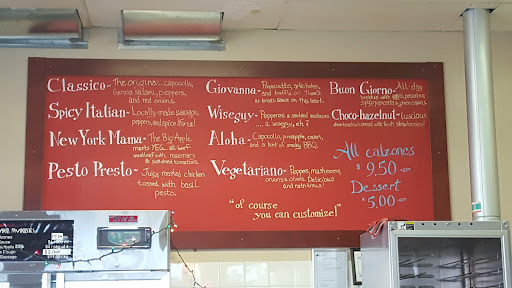 Classico- The original. capocollo,
Genoa salami, peppers,
and red onions.
Spicy Italian- Locally made sausage,
peppers, and spice
New York Mama- The Big Apple
meets YEG. all-beef
meatloaf with rosemary
& sundried tomatoes.
Pesto Presto- Juicy roasted chicken
tossed with basil
pesto.
Giovanna- Prosciutto, artichokes,
and truffle oil. There's
no tomato sauce on this beast.
Wiseguy- Pepperoni & sautéed mushrooms
.... a wiseguy, eh?
Aloha- Capocollo, pineapple, onion,
and a hint of smoky BBQ.
Vegetariano- Peppers, mushrooms,
onions & olives. Delicious
and nutritious
"of course
you can customize!"
Buon Giorno- All-day
breakfast with eggs,
Choco-hazelnut- luscious
chocohazelnut spread with fresh strawberries!
All calzones
$9.50 +GST
Dessert
$5.00 +GST